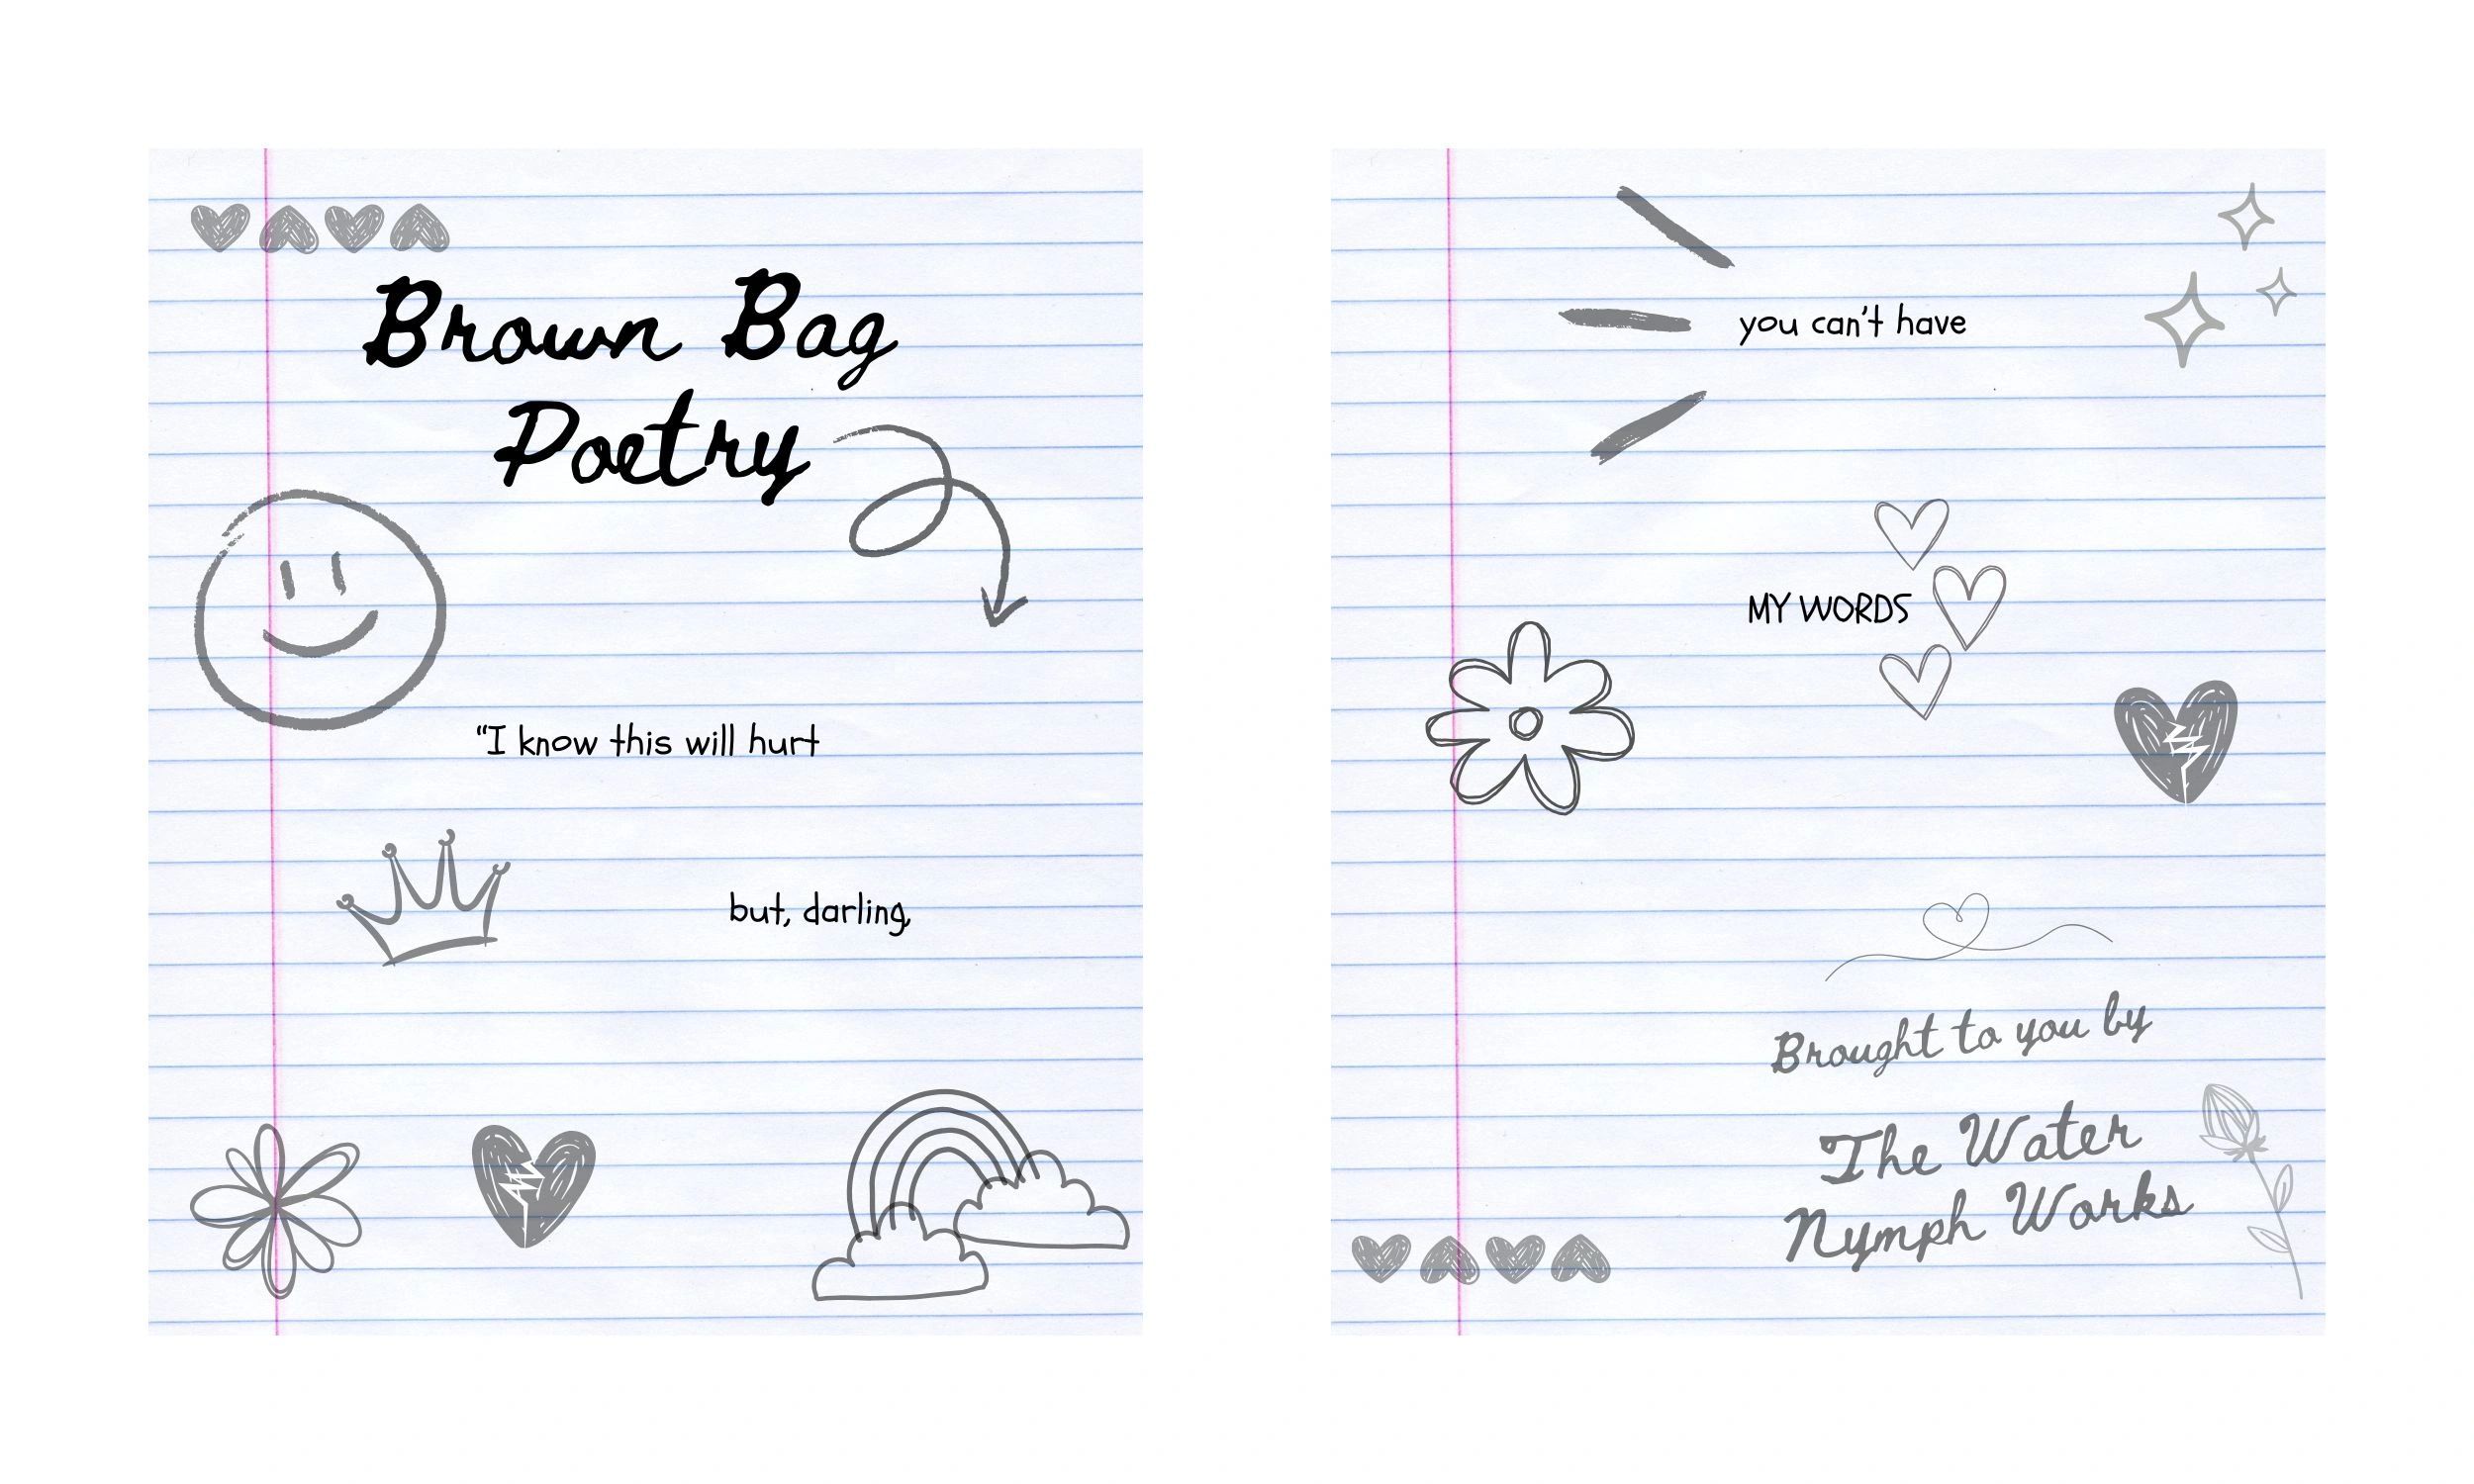 Brown Bag
Poetry
"I know this will hurt
but, darling,
you can't have
MY WORDS
Brought to you by
The Water
Nymph Works